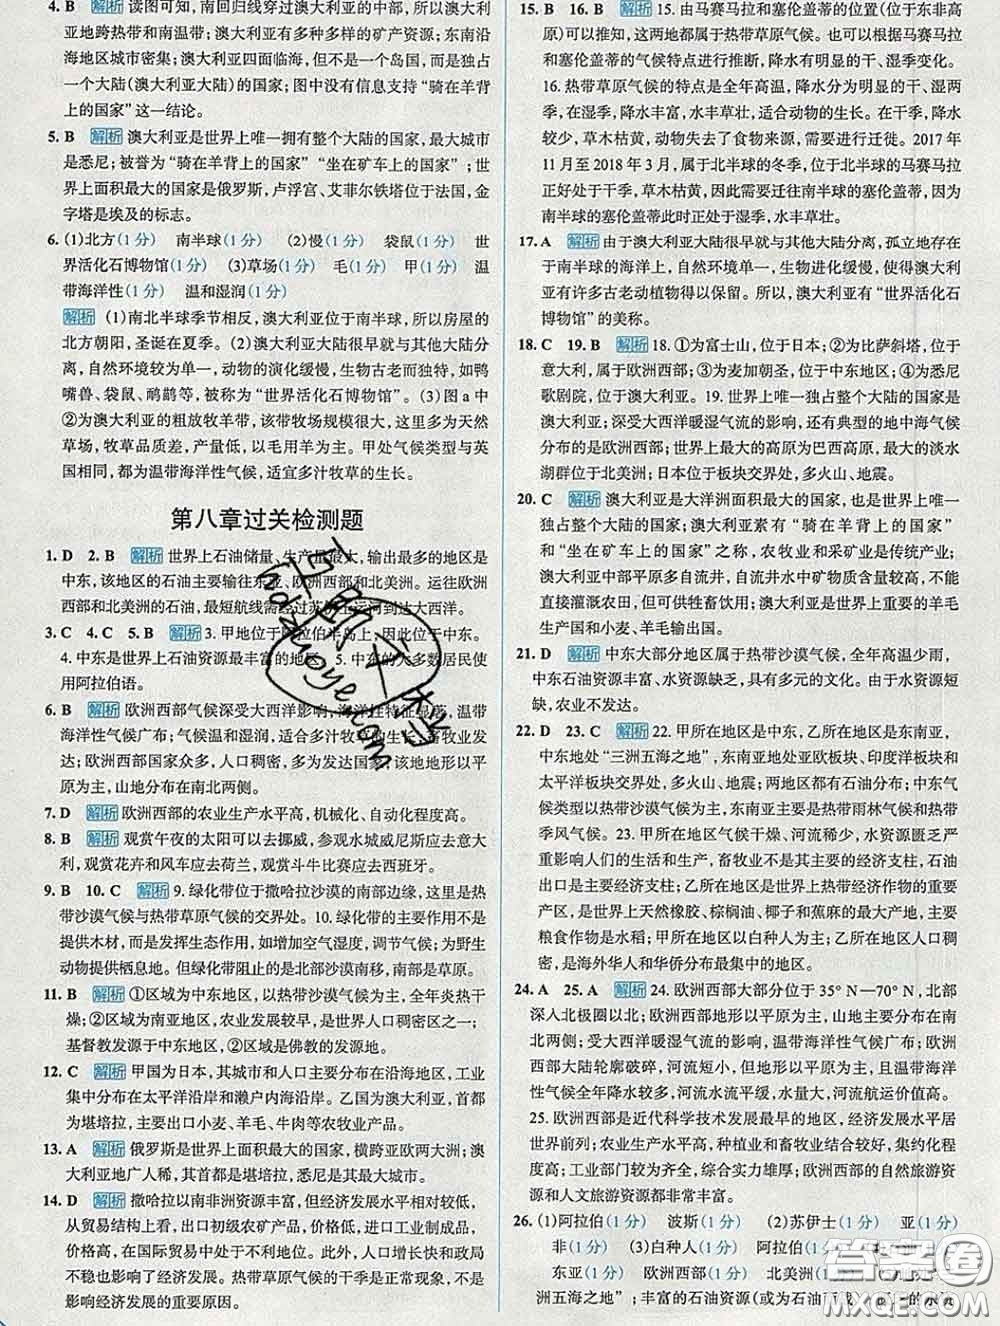 4. B 解析 读图可知，南回归线穿过澳大利亚的中部，所以澳大利
亚地跨热带和南温带；澳大利亚有多种多样的矿产资源；东南沿
海地区城市密集；澳大利亚四面临海，但不是一个岛国，而是独占
一个大陆（澳大利亚大陆）的国家；图中没有信息支持“骑在羊背
上的国家”这一结论。
5. B 解析 澳大利亚是世界上唯一拥有整个大陆的国家，最大城市
是悉尼；被誉为“骑在羊背上的国家”“坐在矿车上的国家”；世
界上面积最大的国家是俄罗斯，卢浮宫、艾菲尔铁塔位于法国，金
字塔是埃及的标志。
6. (1)北方(1分) 南半球(1分) (2)慢(1分) 袋鼠(1分) 世
界活化石博物馆(1分) (3)草场(1分) 毛(1分) 甲(1分) 温
带海洋性(1分) 温和湿润(1分)
解析 (1)南北半球季节相反，澳大利亚位于南半球，所以房屋的
北方朝阳，圣诞在夏季。(2)澳大利亚大陆很早就与其他大陆分
离，自然环境较为单一，动物的演化缓慢，生物古老而独特，如鸭
嘴兽、袋鼠、鸸鹋等，被称为“世界活化石博物馆”。(3)图a中
②为澳大利亚的粗放牧羊带，该带牧场规模很大，这里多为天然
草场，牧草品质差，产量低，以毛用羊为主。甲处气候类型与英
国相同，都为温带海洋性气候，适宜多汁牧草的生长。
第八章过关检测题
1. D 2. B 解析 世界上石油储量、生产量最大，输出最多的地区是
中东，该地区的石油主要输往东亚、欧洲西部和北美洲。运往欧洲
西部和北美洲的石油，最短航线需经过苏伊士运河到达大西洋。
3. C 4. C 5. B 解析 3. 甲地位于阿拉伯半岛上，因此位于中东。
4. 中东是世界上石油资源最丰富的地区。5. 中东的大多数居民使
用阿拉伯语。
6. B 解析 欧洲西部气候深受大西洋影响，海洋性特征显著，温带
海洋性气候广布；气候温和湿润，适合多汁牧草的生长，畜牧业发
达；欧洲西部国家众多，人口稠密，多为发达国家；该地地形以平
原为主，山地分布在南北两侧。
7. D 解析 欧洲西部的农业生产水平高，机械化、自动化程度高。
8. B 解析 观赏午夜的太阳可以去挪威，参观水城威尼斯应去意大
利，观赏花卉和风车应去荷兰，观赏斗牛比赛应去西班牙。
9. B 10. C 解析 9. 绿化带位于撒哈拉沙漠的南部边缘，这里是热
带沙漠气候与热带草原气候的交界处。10. 绿化带的主要作用不是
提供木材，而是发挥生态作用，如增加空气湿度，调节气候；为野生
动物提供栖息地。但绿化带阻止的是北部沙漠南移，南部是草原。
11. B 解析 ①区域为中东地区，以热带沙漠气候为主，全年炎热干
燥；②区域为南亚地区，农业发展较早，是世界人口稠密区之一；
基督教发源于中东地区，②区域是佛教的发源地。
12. C 解析 甲国为日本，其城市和人口主要分布在沿海地区，工业
集中分布在太平洋沿岸和濑户内海沿岸。乙国为澳大利亚，首都
为堪培拉，主要出口小麦、羊毛、牛肉等农牧业产品。
13. A 解析 俄罗斯是世界上面积最大的国家，横跨亚欧两大洲；澳
大利亚地广人稀，其首都是堪培拉，悉尼是其最大城市。
14. D 解析 撒哈拉以南非洲资源丰富，但经济发展水平相对较低，
从贸易结构上看，出口初级农矿产品，价格低，进口工业制成品，
价格高，在国际贸易中处于不利地位。此外，人口增长快和政局
不稳也影响了经济发展。热带草原气候的干季是正常现象，不是
影响经济发展的重要原因。
15. B 16. B 解析 15. 由马赛马拉和塞伦盖蒂的位置（位于东非高
原）可以推知，这两地都属于热带草原气候。也可以根据马赛马拉
和塞伦盖蒂的气候特点进行推断，降水有明显的干、湿季变化。
16. 热带草原气候的特点是全年高温，降水分为明显的干、湿两
季，在湿季，降水丰富，水丰草壮，适合动物的生长。在干季，降水
较少，草木枯黄，动物失去了食物来源，需要进行迁徙。2017年
11月至2018年3月，属于北半球的冬季，位于北半球的马赛马拉
正好处于干季，草木枯黄，因此需要迁往南半球的塞伦盖蒂，因为
南半球的塞伦盖蒂此时正处于湿季，水丰草壮。
17. A 解析 由于澳大利亚大陆很早就与其他大陆分离，孤立地存在
于南半球的海洋上，自然环境单一，生物进化缓慢，使得澳大利
亚有许多古老动植物得以保留。所以，澳大利亚有“世界活化石
博物馆”的美称。
18. C 19. B 解析 18. ①为富士山，位于日本；②为比萨斜塔，位于
意大利，属于欧洲西部；③为麦加朝圣，位于中东地区；④为悉尼
歌剧院，位于澳大利亚。19. 世界上唯一独占整个大陆的国家是
澳大利亚；深受大西洋暖湿气流的影响，还有典型的地中海气候
分布的是欧洲西部；世界上最大的高原为巴西高原，最大的淡水
湖群位于北美洲；日本位于板块交界处，多火山、地震。
20. C 解析 澳大利亚是大洋洲面积最大的国家，也是世界上唯一
独占整个大陆的国家，澳大利亚素有“骑在羊背上的国家”
和“坐在矿车上的国家”之称，农牧业和采矿业是传统产业；
澳大利亚中部平原多自流井，自流井水中矿物质含量较高，不能
直接灌溉农田，但可供牲畜饮用；澳大利亚是世界上重要的羊毛
生产国和小麦、羊毛输出国。
21. D 解析 中东大部分地区属于热带沙漠气候，全年高温少雨，
中东石油资源丰富、水资源缺乏，具有多元的文化。由于水资源短
缺，农业不发达。
22. D 23. C 解析 22. 甲所在地区是中东，乙所在地区是东南亚，
中东地处“三洲五海之地”，东南亚地处亚欧板块、印度洋板块和
太平洋板块交界处，多火山、地震；两地都有石油分布；中东气
候类型以热带沙漠气候为主，东南亚主要是热带雨林气候和热带
季风气候。23. 甲所在地区气候干燥、河流稀少，水资源匮乏严
重影响人们的生活和生产，畜牧业不是其主要的经济支柱，石油
出口是主要经济支柱；乙所在地区是世界热带经济作物的重要
产区，是世界上天然橡胶、棕榈油、椰子和蕉麻的最大产地，主要
粮食作物是水稻；甲所在地区以白种人为主；乙所在地区人口稠
密，是海外华人和华侨分布最集中的地区。
24. A 25. A 解析 24. 欧洲西部大部分位于35°N—70°N，北部
深入北极圈以北；欧洲西部地形以平原为主，山地主要分布在南
北两侧；受大西洋暖湿气流的影响，温带海洋性气候广布；欧洲
西部大陆轮廓破碎，河流短小，但流域内地形平坦，温带海洋性
气候全年降水较多，河流水流平缓，水量大，河流航运价值高。
25. 欧洲西部是近代科学技术发展最早的地区，经济发展水平居
世界前列；农业生产水平高，种植业和畜牧业结合较好，集约化程
度高；工业部门较为齐全，综合实力雄厚；欧洲西部的自然旅游资
源和人文旅游资源都非常丰富。
26. (1)阿拉伯(1分) 波斯(1分) (2)苏伊士(1分) 亚(1分)
非(1分) (3)白种人(1分) 阿拉伯(1分)
东亚(1分) 欧洲西部(1分) 北美洲(1分)
洲五海之地”；丰富的石油资源（或为石油